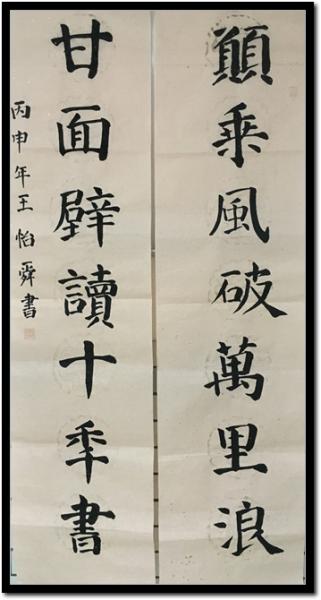 願乘風破萬里浪
甘面壁讀十秊書
丙申年王怡舜書